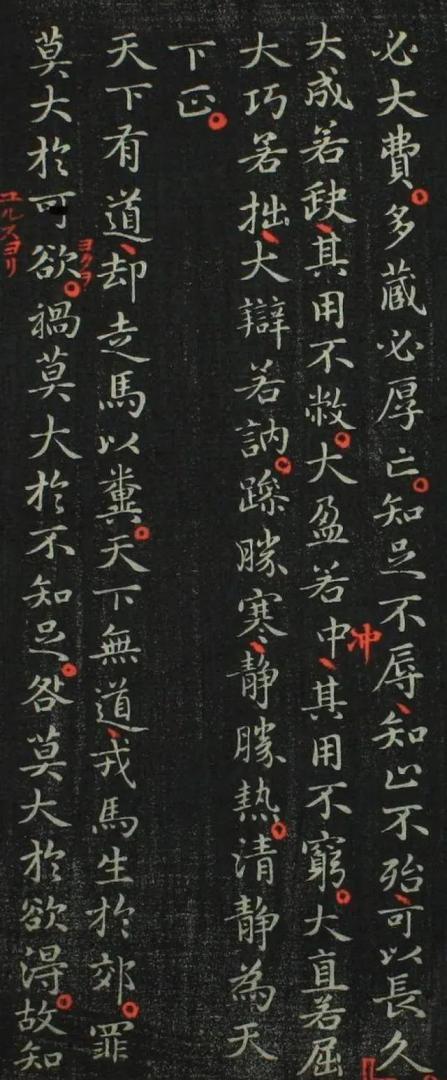 必大費。多蔵必厚亡。知足不辱、知止不殆、可以長久
冲
大成若缺、其用不敝。大盈若中、其用不窮。大直若屈
大巧若拙、大辯若訥。躁勝寒、静勝熱。清静為天
下正。
天下有道、却走馬以糞。天下無道、戎馬生於郊。罪
ヨクヲ
莫大於可欲。禍莫大於不知足。咎莫大於欲淂。故知
ユルスヨリ